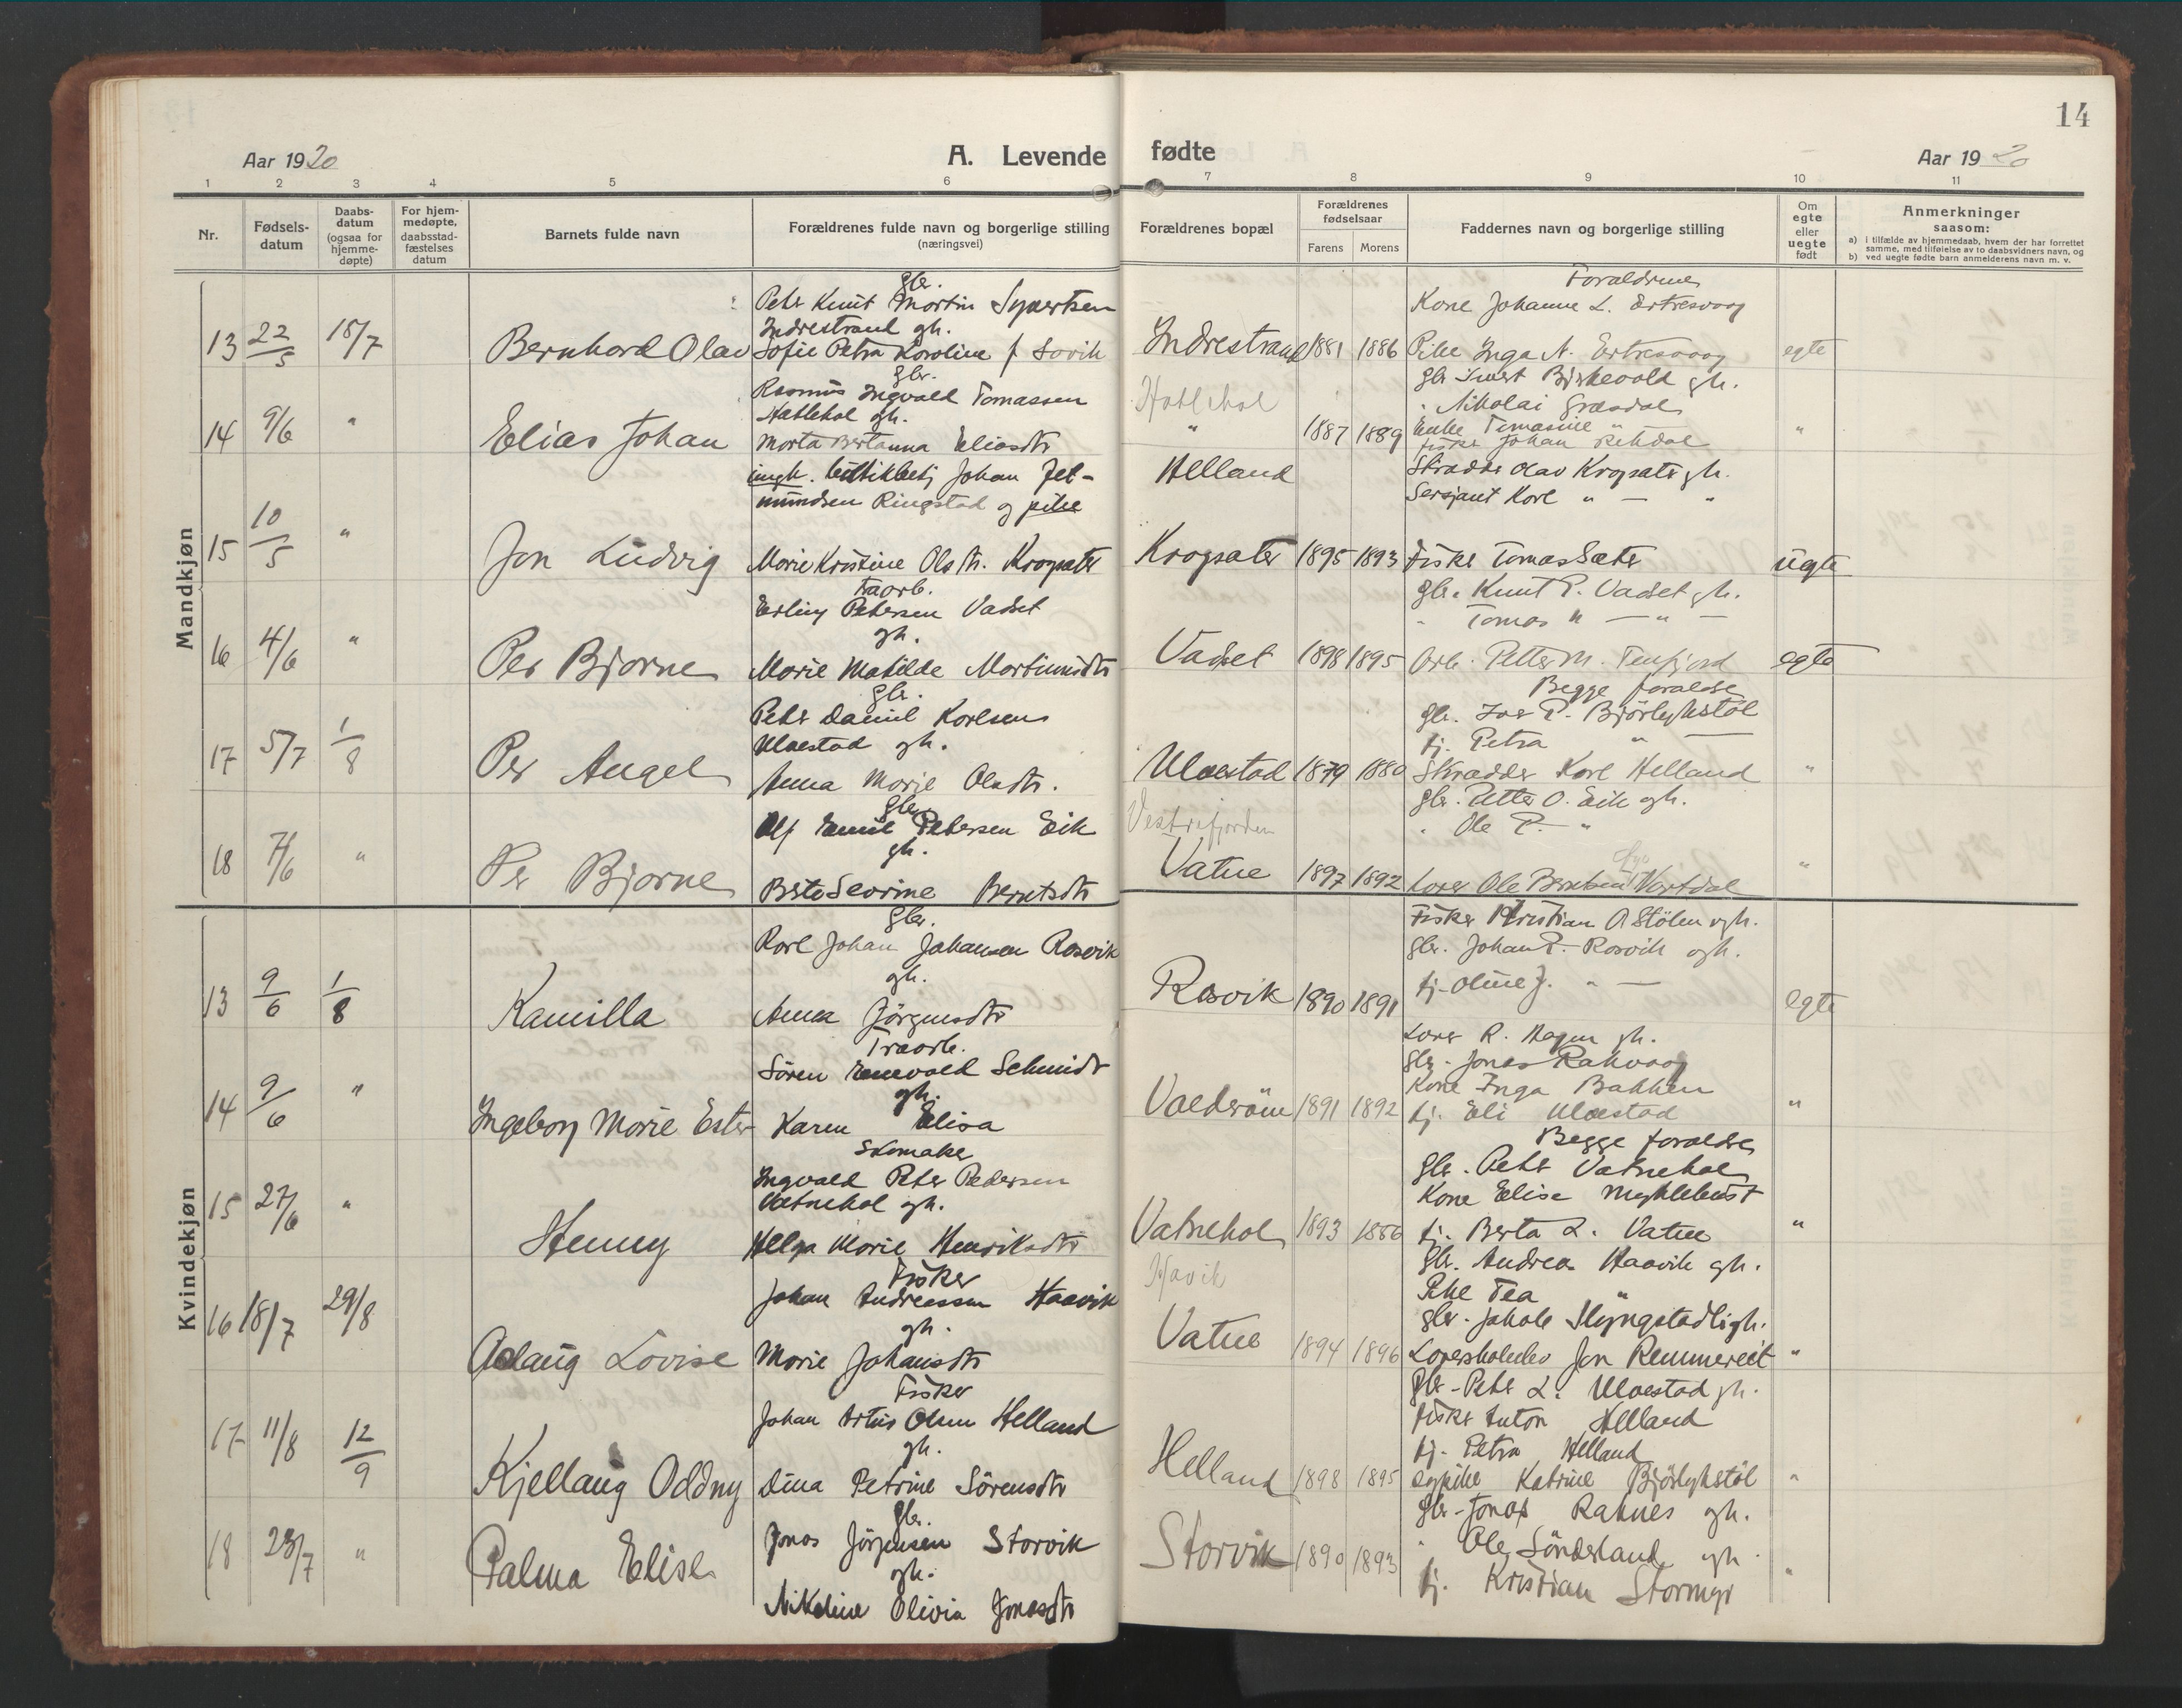 14
Aar 1920
A. Levende fødte
Aar 1920
1 2 3 4 5 6 7 8 9 10 11
Nr.
Fødsels-
datum
Daabs-
datum
(ogsaa for
hjemme-
døpte)
For hjem-
medøpte,
daabsstad-
fæstelses
datum
Barnets fulde navn
Forældrenes fulde navn og borgerlige stilling
(næringsvei)
Forældrenes bopæl
Forældrenes
fødselsaar
Farens Morens
Faddernes navn og borgerlige stilling
Om
egte
eller
uegte
født
Anmerkninger
saasom:
a) i tilfælde av hjemmedaab, hvem der har forrettet
samme, med tilføielse av to daabsvidners navn, og
b) ved uegte fødte barn anmelderens navn m. v.
Mandkjøn
13 22/5 18/7 Bernhard Olav
gbr.
Peter Knut Martin Syvertsen
Indrestrand gh.
Sofie Petra Karoline f. Sovik
Indrestrand 1881 1886
Foraldrene
Kone Johanne L. Ertresvaag
Pike Inga N. Ertresvaag
egte
14 9/6 " Elias Johan
gbr.
Rasmus Ingvald Tomassen
Hatlehol gh.
Marta Bertanna Eliasdtr
Hatlehol
" 1887 1889
gbr Knut Bjerkevold gh.
" Nikolai Græsdal
Enke Tomasine "
Fisker Johan Rekdal
"
15 10/5 " Jon Ludvig
ungk. butikbetj Johan Jet-
mundsen Ringstad og pike
Marie Kristine Olsdtr. Krogsater
Helland
Krogsater 1895 1893
Skrædder Olav Krogsater gh.
Sersjant Karl " — "
Fisker Tomas Sater
uegte
16 4/6 " Per Bjarne
Træarb.
Erling Petersen Vadset
gh.
Marie Matilde Martinusdtr
Vadset 1898 1895
gbr. Knut P. Vadset gh.
" Tomas " — " —
Arb. Petter M. Tenfjord
egte
17 5/7 1/8 Per Angel
gbr.
Peter Daniel Karlsen
Ulvestad gh.
Anna Marie Olsdtr.
Ulvestad 1879 1880
Begge foraldre
gbr. Iver P. Bjørlykstøl
tj. Petra " —
Skrædder Karl Helland
"
18 7/6 " Per Bjarne
gbr.
Olf Emil Petersen Eik
gh.
Berte Severine Berntsdtr
Vestrefjorden
Vatne 1897 1892
gbr. Petter O. Eik gh.
" Ole P. — "
Lærer Ole Berntsen Vartdal
"
Kvindekjøn
13 9/6 1/8 Kamilla
gbr.
Karl Johan Johansen Rosvik
gh.
Anna Jørgensdtr
Rosvik 1890 1891
Fisker Kristian A Stølen gh.
gbr. Johan P. Rosvik gh.
tj. Oline J. " —
egte
14 9/6 " Ingeborg Marie Ester
Træarb.
Søren Enevald Schmidt
gh.
Karen Elisa
Valderøen 1891 1892
Lærer R. Hagen gh.
gbr. Jonas Rakvaag
Kone Inga Bakken
tj. Eli Ulvestad
"
15 27/6 " Henny
Skomaker
Ingvald Peter Pedersen
Vatnehol gh.
Helga Marie Henriksdtr
Vatnehol 1893 1886
Begge foraldre
gbr. Peter Vatnehol
Kone Elise Myklebust
tj. Berta L. Vatne
"
16 18/7 29/8 Aslaug Lovise
Fisker
Johan Andreassen Haavik
gh.
Marie Johansdtr
Havik
Vatne 1894 1896
gbr. Andreas Haavik gh.
Pike Tea "
gbr. Jakob Slyngstadli gh.
Lærerskoleelev Jon Remmereit
"
17 11/8 12/9 Kjellaug Oddny
Fisker
Johan Artus Olsen Helland
gh.
Dina Petrine Sørensdtr
Helland 1898 1895
gbr. Peter L. Ulvestad gh.
Fisker Anton Helland
tj. Petra Helland
sypike Katrine Bjørlykstøl
"
18 23/7 " Palma Elise
gbr.
Jonas Jørgensen Storvik
gh.
Nikoline Olivia Jonasdtr
Storvik 1890 1893
gbr. Jonas Raknes gh.
" Ole Sønderland gh
tj. Kristian Stormyr
"